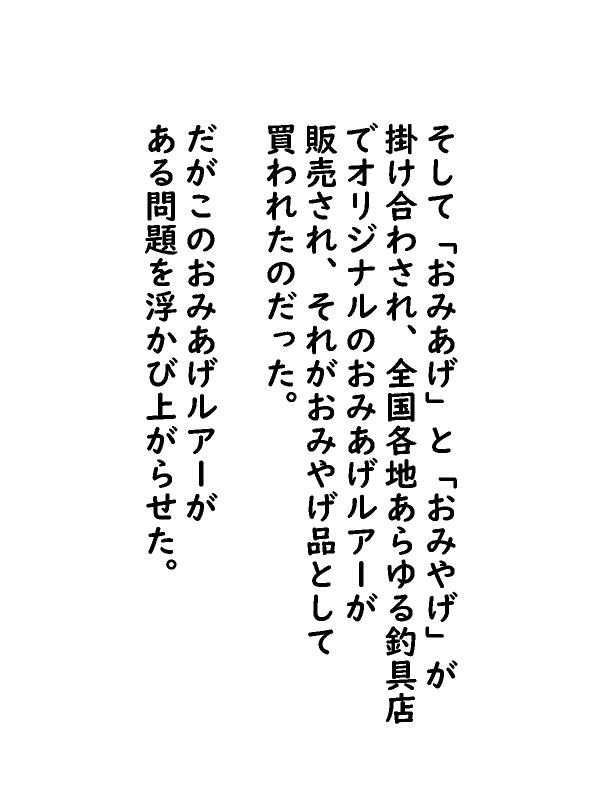 そして「おみあげ」と「おみやげ」が
掛け合わされ、全国各地あらゆる釣具店
でオリジナルのおみあげルアーが
販売され、それがおみやげ品として
買われたのだった。
だがこのおみあげルアーが
ある問題を浮かび上がらせた。